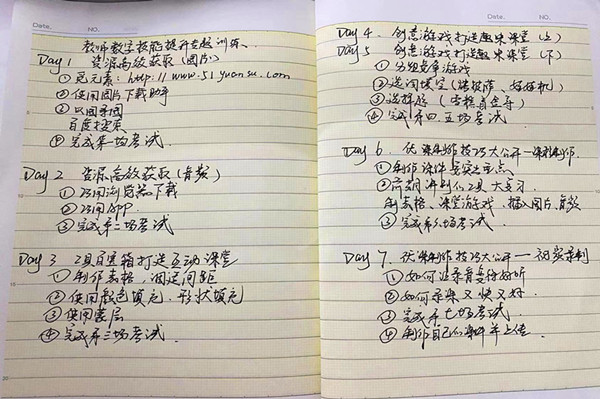 Date. NO.
教师数字技能提升专题训练.
Day 1 资源高效获取(图片)
①觅元素:http://www.51yuansu.com
②使用图片下载助手
③以图寻图
百度搜索
④完成第一场考试.
Day 2 资源高效获取(音频)
①巧用浏览器下载
②巧用APP.
③完成第二场考试
Day 3 工具百宝箱打造互动课堂
①制作表格,固定间距
②使用颜色填充,形状填充
③使用蒙层
④完成第三场考试.
Date. NO.
Day 4. 创意游戏打造趣味课堂(上)
Day 5 创意游戏打造趣味课堂(下)
①分组竞争游戏
②选词填空
③选择题
④完成第四、五场考试.
Day 6. 优课制作技巧大公开—课件制作.
①制作课件要突出重点
②工具
表格、课堂游戏,插入图片,音频
③完成第六场考试.
Day 7. 优课制作技巧大公开—视频录制
①如何让录音变得好听
②如何录课又快又好.
③完成第七场考试.
④制作自己的课件并上传.